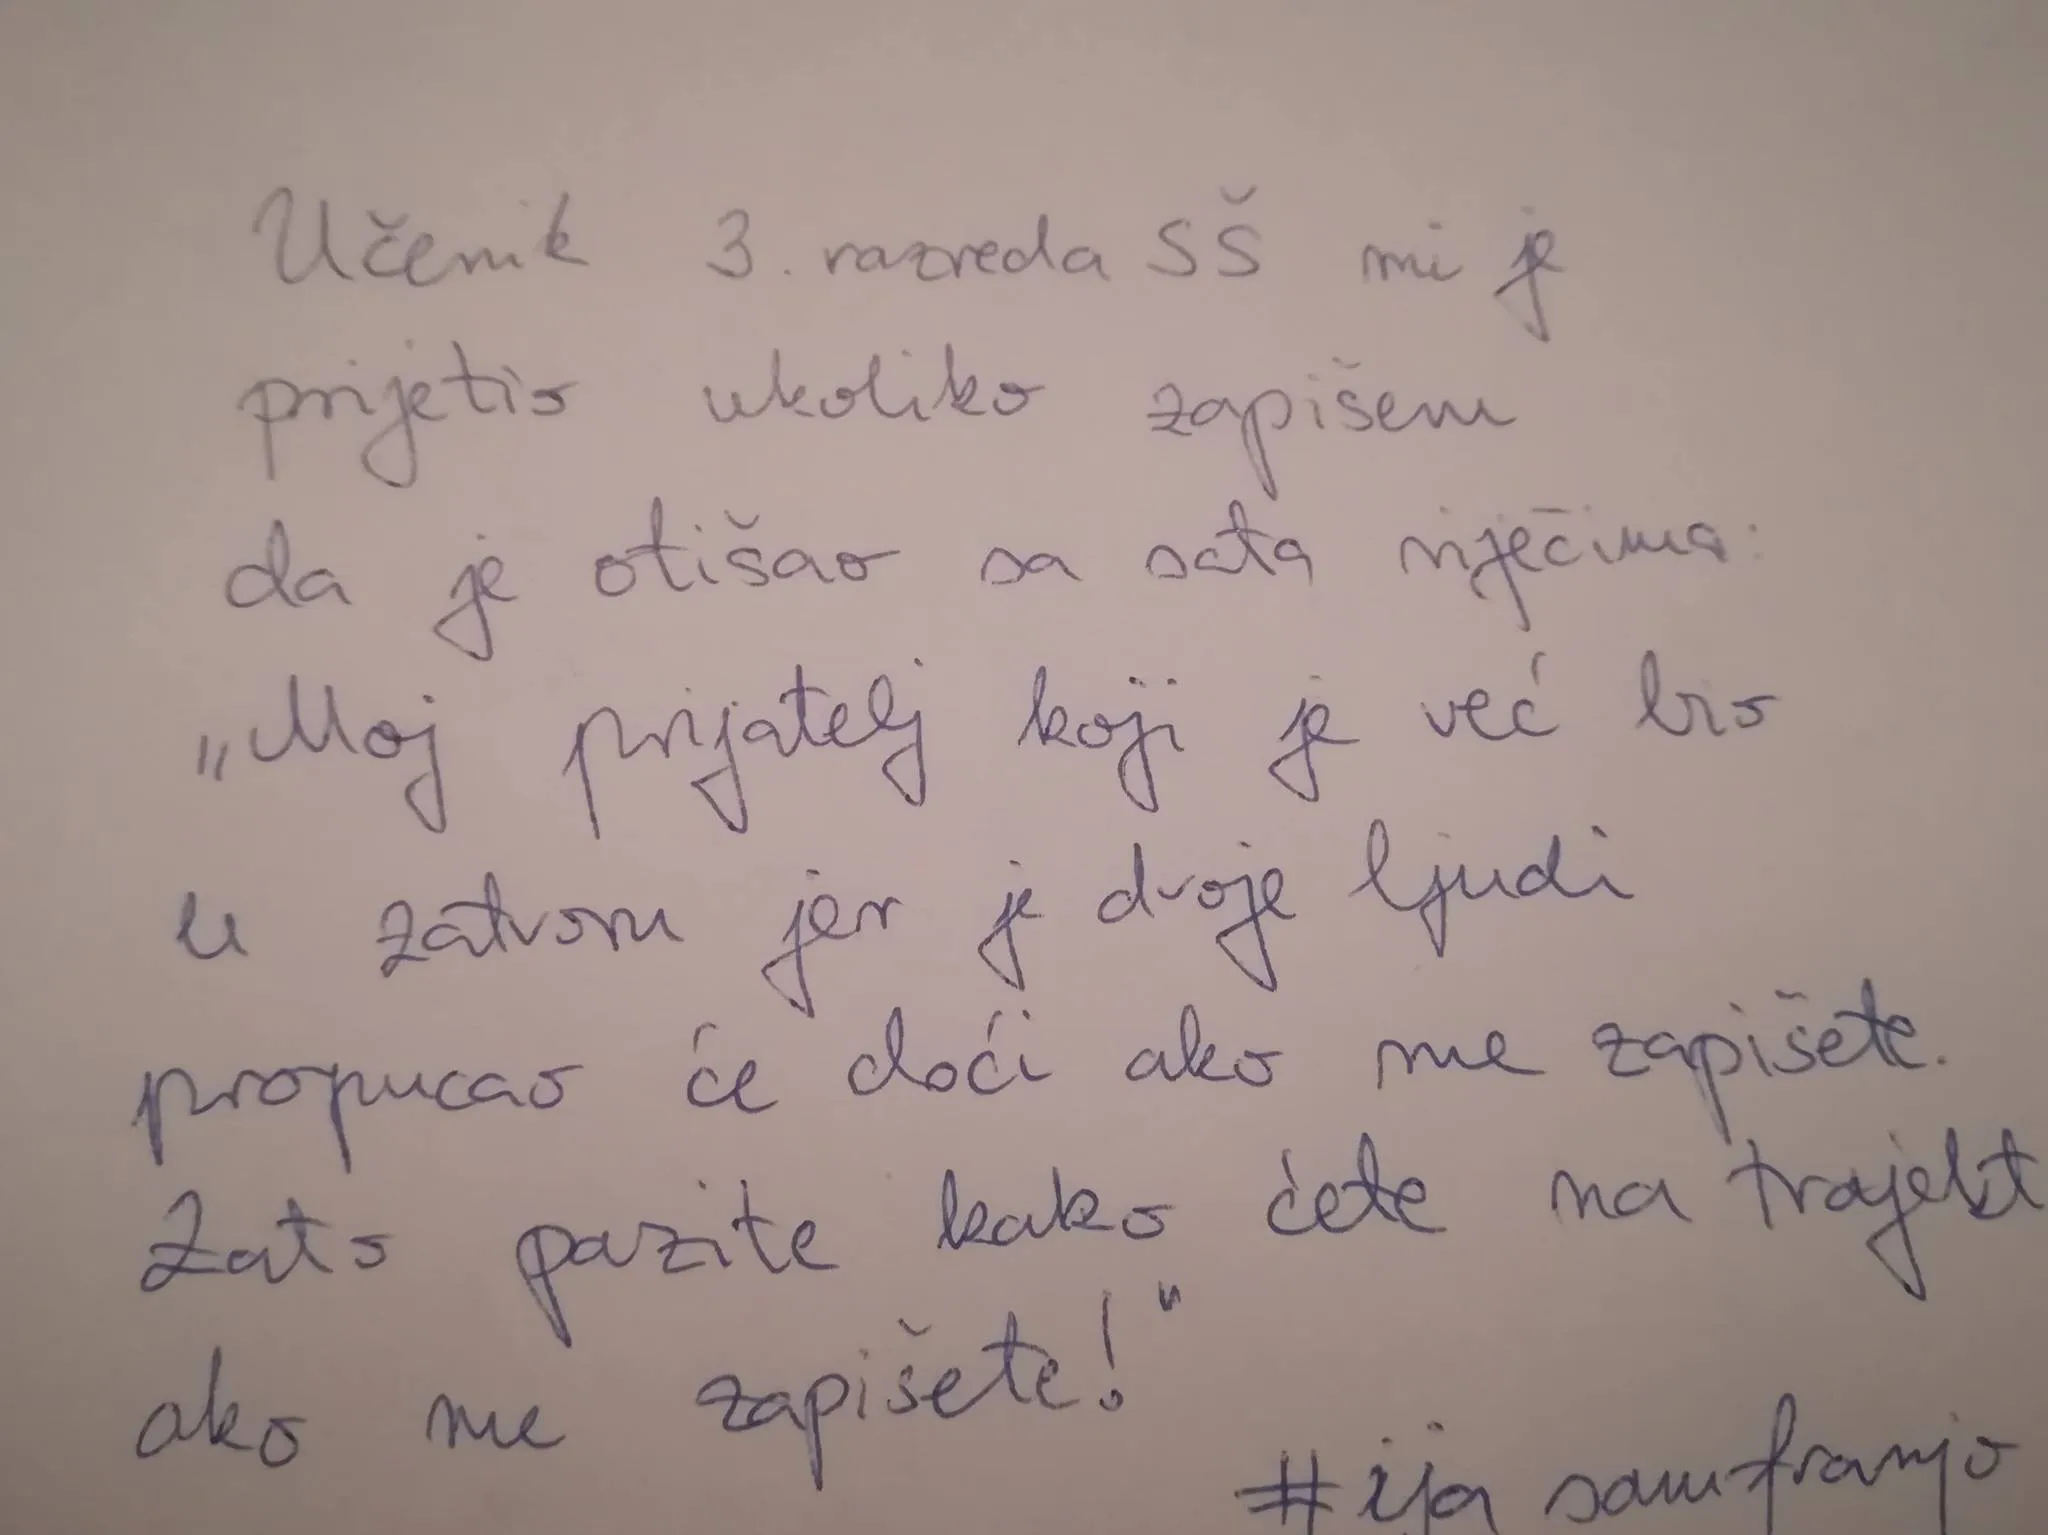 Učenik 3. razreda SŠ mi je
prijetio ukoliko zapišem
da je otišao sa sata riječima:
„Moj prijatelj koji je već bio
u zatvoru jer je dvoje ljudi
propucao će doći ako me zapišete.
Zato pazite kako ćete na trajekt
ako me zapišete!"
#ija sam franjo